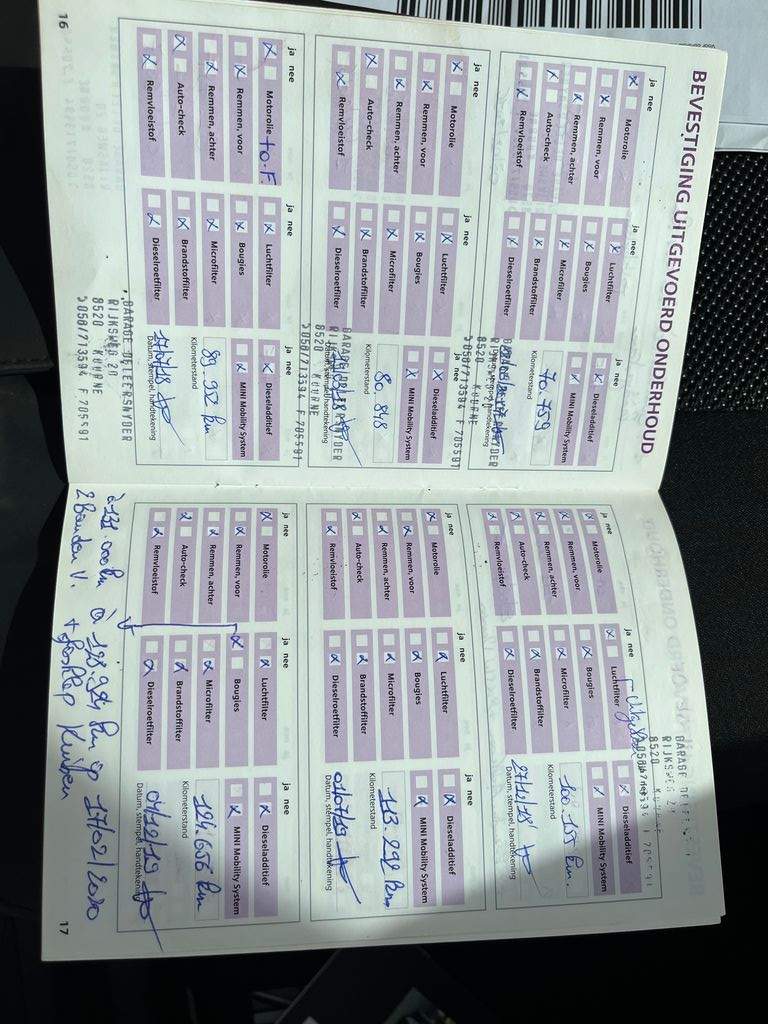 BEVESTIGING UITGEVOERD ONDERHOUD
ja nee
Motorolie
Remmen, voor
Remmen, achter
Auto-check
Remvloeistof
ja nee
Luchtfilter
Bougies
Microfilter
Brandstoffilter
Dieselroetfilter
ja nee
Dieseladditief
MINI Mobility System
Kilometerstand
70.759
Datum, stempel, handtekening
RIJKSWEG 20
8520 KUURNE
056/713594 F 705591
ja nee
Motorolie
Remmen, voor
Remmen, achter
Auto-check
Remvloeistof
ja nee
Luchtfilter
Bougies
Microfilter
Brandstoffilter
Dieselroetfilter
ja nee
Dieseladditief
MINI Mobility System
Kilometerstand
80 848
Datum, stempel, handtekening
8520 KUURNE
056/713594 F 705591
ja nee
Motorolie + O.F.
Remmen, voor
Remmen, achter
Auto-check
Remvloeistof
ja nee
Luchtfilter
Bougies
Microfilter
Brandstoffilter
Dieselroetfilter
ja nee
Dieseladditief
MINI Mobility System
Kilometerstand
89.932 km
Datum, stempel, handtekening
GARAGE DELEERSNYDER
RIJKSWEG 20
8520 KUURNE
056/713594 F 705591
16
ja nee
Motorolie
Remmen, voor
Remmen, achter
Auto-check
Remvloeistof
ja nee
Luchtfilter
Bougies
Microfilter
Brandstoffilter
Dieselroetfilter
GARAGE
RIJKSWEG 20
8520 KUURNE
Dieseladditief
MINI Mobility System
Kilometerstand
100.155 km.
Datum, stempel, handtekening
27/11/18
ja nee
Motorolie
Remmen, voor
Remmen, achter
Auto-check
Remvloeistof
ja nee
Luchtfilter
Bougies
Microfilter
Brandstoffilter
Dieselroetfilter
ja nee
Dieseladditief
MINI Mobility System
Kilometerstand
113.292 km
Datum, stempel, handtekening
ja nee
Motorolie
Remmen, voor
Remmen, achter
Auto-check
Remvloeistof
ja nee
Luchtfilter
Bougies
Microfilter
Brandstoffilter
Dieselroetfilter
ja nee
Dieseladditief
MINI Mobility System
Kilometerstand
124.656 km
Datum, stempel, handtekening
04/12/19
à 131.000 km à 128.954 km op 17/02/2020
2 Banden V.
17